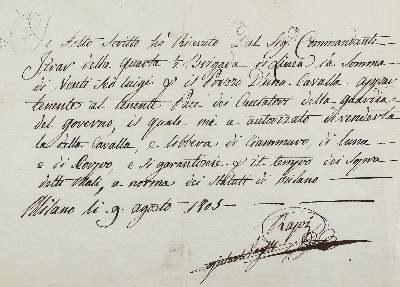 Io Sotto Scritto hò Ricevuto Dal Sig.r Commandante
della Quarta ½ Brigata di Linea la Somma
di Venti luigi p il Prezzo D'una Cavalla appar
tenente al Tenente dei Cacciatori della guardia
del governo, il quale mi a autorizato di venderla
la detta Cavalla, e Libbera di Ciammoro di Luna
e di Bolzo e Si garantisce p il tempo dei Sopra
detti Mali, a norma dei Statuti di Milano
Milano li 9 agosto 1803